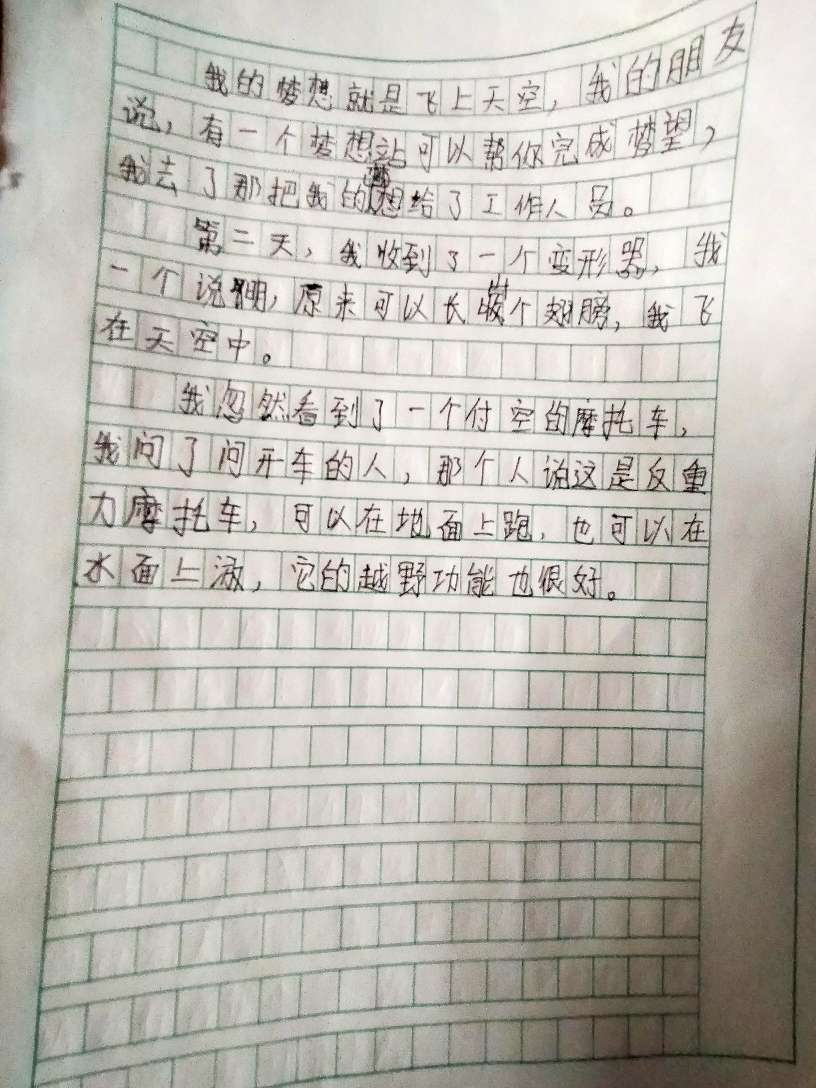 我的梦想就是飞上天空，我的朋友
说，有一个梦想站可以帮你完成梦望，
我去了那把我的梦想给了工作人员。
第二天，我收到了一个变形器，我
一个说明，原来可以长出个翅膀，我飞
在天空中。
我忽然看到了一个付空的摩托车，
我问了问开车的人，那个人说这是反重
力摩托车，可以在地面上跑，也可以在
水面上游，它的越野功能也很好。